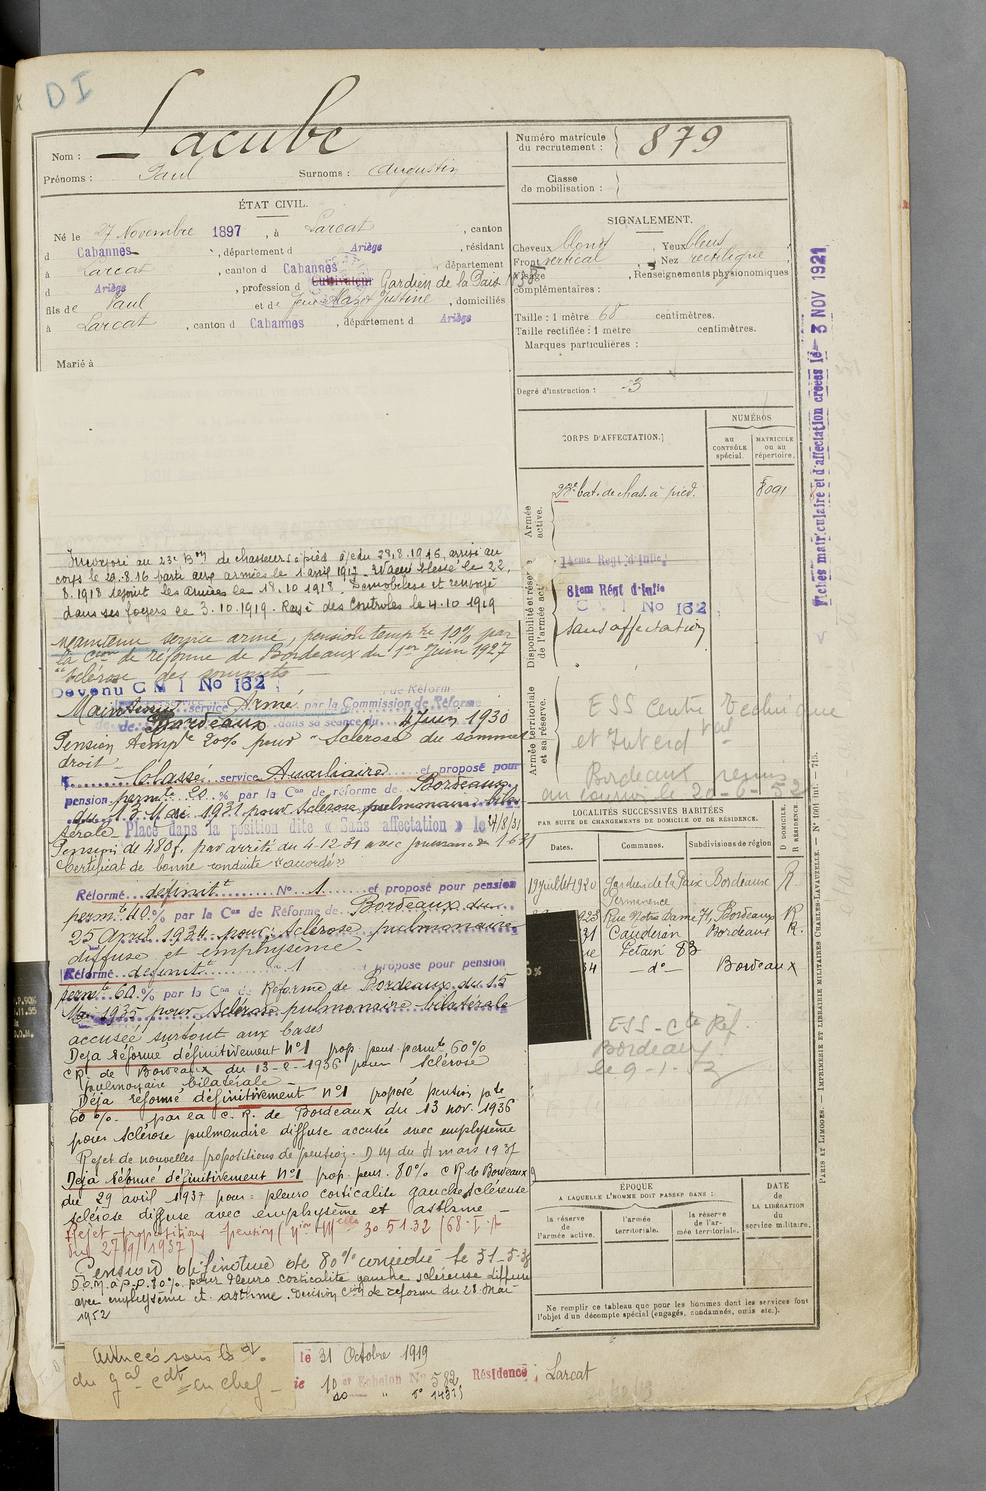 DI
Nom : Lacube
Prénoms : Paul Surnoms : Augustin
Numéro matricule du recrutement : 879
Classe de mobilisation :
ÉTAT CIVIL.
Né le 27 Novembre 1897, à Larcat, canton
d Cabannes, département d Ariège, résidant
à Larcat, canton d Cabannes, département
d Ariège, profession d Cultivateur Gardien de la Paix
fils de Paul et de Justine, domiciliés
à Larcat, canton d Cabannes, département d Ariège
Marié à
SIGNALEMENT.
Cheveux blond, Yeux bleus
Front vertical, Nez rectiligne
Visage, Renseignements physionomiques
complémentaires :
Taille : 1 mètre 68 centimètres.
Taille rectifiée : 1 mètre centimètres.
Marques particulières :
Degré d'instruction : 3
Fiches matriculaire et d'affectation créées le 3 NOV 1921
CORPS D'AFFECTATION.
NUMÉROS
au CONTRÔLE spécial.
MATRICULE ou au répertoire.
Armée active.
23e bat. de chas. à pied. 8091
Disponibilité et réserve de l'armée active
14eme Regt d'Infie
81em Regt d'Infie
C M I No 162
Sans affectation
Armée territoriale et sa réserve.
ESS Centre Technique
et Interd
Bordeaux
au 20-6-52
Incorporé au 23e Bon de chasseurs à pied à/c du 28.8.1916, arrivé au
corps le 29.8.16 parti aux armées le 1 avril 1917. Evacué blessé le 22.
8.1918 rejoint les armées le 18.10.1918. Démobilisé et renvoyé
dans ses foyers le 3.10.1919. Rayé des contrôles le 4.10 1919
Maintenu service armé, pension tempre 10% par
la Cion de réforme de Bordeaux du 1er Juin 1927
"sclérose des sommets
Devenu C M I No 162
Maintenu service Armé par la Commission de Réforme
de Bordeaux dans sa séance du Juin 1930
Pension tempre 20% pour "Sclérose du sommet
droit
Classé service Auxiliaire et proposé pour
pension permte 20 % par la Con de réforme de Bordeaux
du 13 Mai 1931 pour sclérose pulmonaire bila
térale Placé dans la position dite « Sans affectation » le 4/8/31
Pension de 480f. par arrêté du 4.12.31 avec jouissance du 1.6.31
Certificat de bonne conduite "accordé"
Réformé définitt No 1 et proposé pour pension
permte 40 % par la Con de Réforme de Bordeaux du
25 Avril 1934 pour : Sclérose pulmonaire
diffuse et emphysème
Réformé définitt 1 et proposé pour pension
permte 60 % par la Con de Réforme de Bordeaux du 15
Mai 1935 pour sclérose pulmonaire bilatérale
accusée surtout aux bases
Déjà réformé définitivement n°1 prop. pens. permte 60%
CR de Bordeaux du 13-2-1936 pour sclérose
pulmonaire bilatérale
Déjà réformé définitivement n°1 proposé pension pte
60 % par la C. R. de Bordeaux du 13 nov. 1936
pour sclérose pulmonaire diffuse accusée avec emphysème
Rejet de nouvelles propositions de pension. D M du 4 mars 1937
Déjà réformé définitivement n°1 prop. pens. 80% CR de Bordeaux
du 29 avril 1937 pour : pleuro corticalité gauche scléreuse
sclérose diffuse avec emphysème et asthme
Rejet propositions pension
du 27/9/1937)
Pension définitive de 80% concédée le 31-5-38
80% pour pleuro corticalité gauche scléreuse diffuse
avec emphysème et asthme. Décision Cion de réforme du 28 Mai
1952
LOCALITÉS SUCCESSIVES HABITÉES
PAR SUITE DE CHANGEMENTS DE DOMICILE OU DE RÉSIDENCE.
Dates. Communes. Subdivisions de région D DOMICILE. R RÉSIDENCE.
19 juillet 1920 Gardien de la Paix Bordeaux R
Permanence
1923 Rue Notre Dame 71, Bordeaux R
31 Caudéran Bordeaux R.
Pétain 83
34 - do - Bordeaux
ESS - Cte Réf
Bordeaux.
le 9-1-52
ÉPOQUE
A LAQUELLE L'HOMME DOIT PASSER DANS :
la réserve de l'armée active.
l'armée territoriale.
la réserve de l'armée territoriale.
DATE DE LA LIBÉRATION du service militaire.
Ne remplir ce tableau que pour les hommes dont les services font
l'objet d'un décompte spécial (engagés, condamnés, omis etc.).
PARIS ET LIMOGES. — IMPRIMERIE ET LIBRAIRIE MILITAIRES CHARLES-LAVAUZELLE. — N° 1001 int. — 715.
sous
du gal cdt en chef
le 31 Octobre 1919
10 et Echelon No 582 Résidence : Larcat